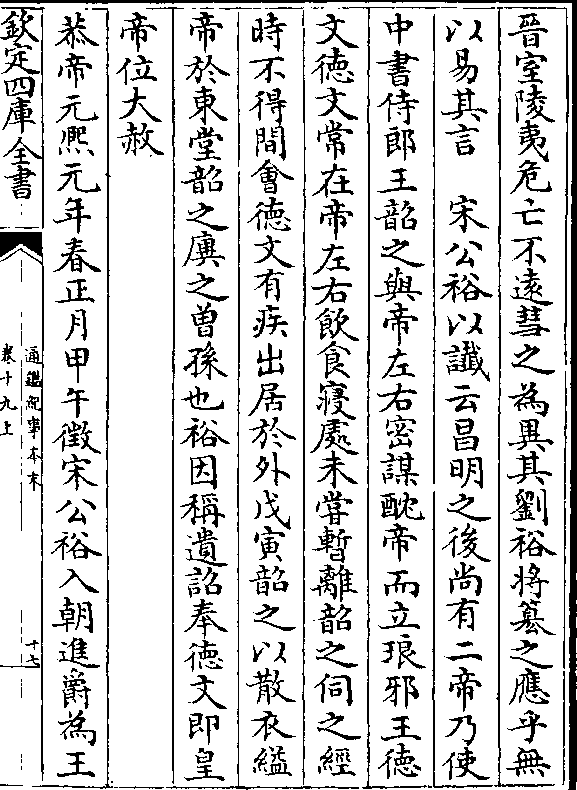 晉室陵夷危亡不遠彗之為異其劉裕將簒之應乎無
以易其言　宋公裕以䜟云昌明之後尚有二帝乃使
中書侍郎王韶之與帝左右密謀酖帝而立琅邪王徳
文徳文常在帝左右飲食寢處未嘗暫離韶之伺之經
時不得間會徳文有疾出居於外戊寅韶之以散衣縊
帝於東堂韶之廙之曽孫也裕因稱遺詔奉徳文即皇
帝位大赦
恭帝元熈元年春正月甲午徵宋公裕入朝進爵為王
欽定四庫全書
通鑑紀事本末
卷十九上
十七